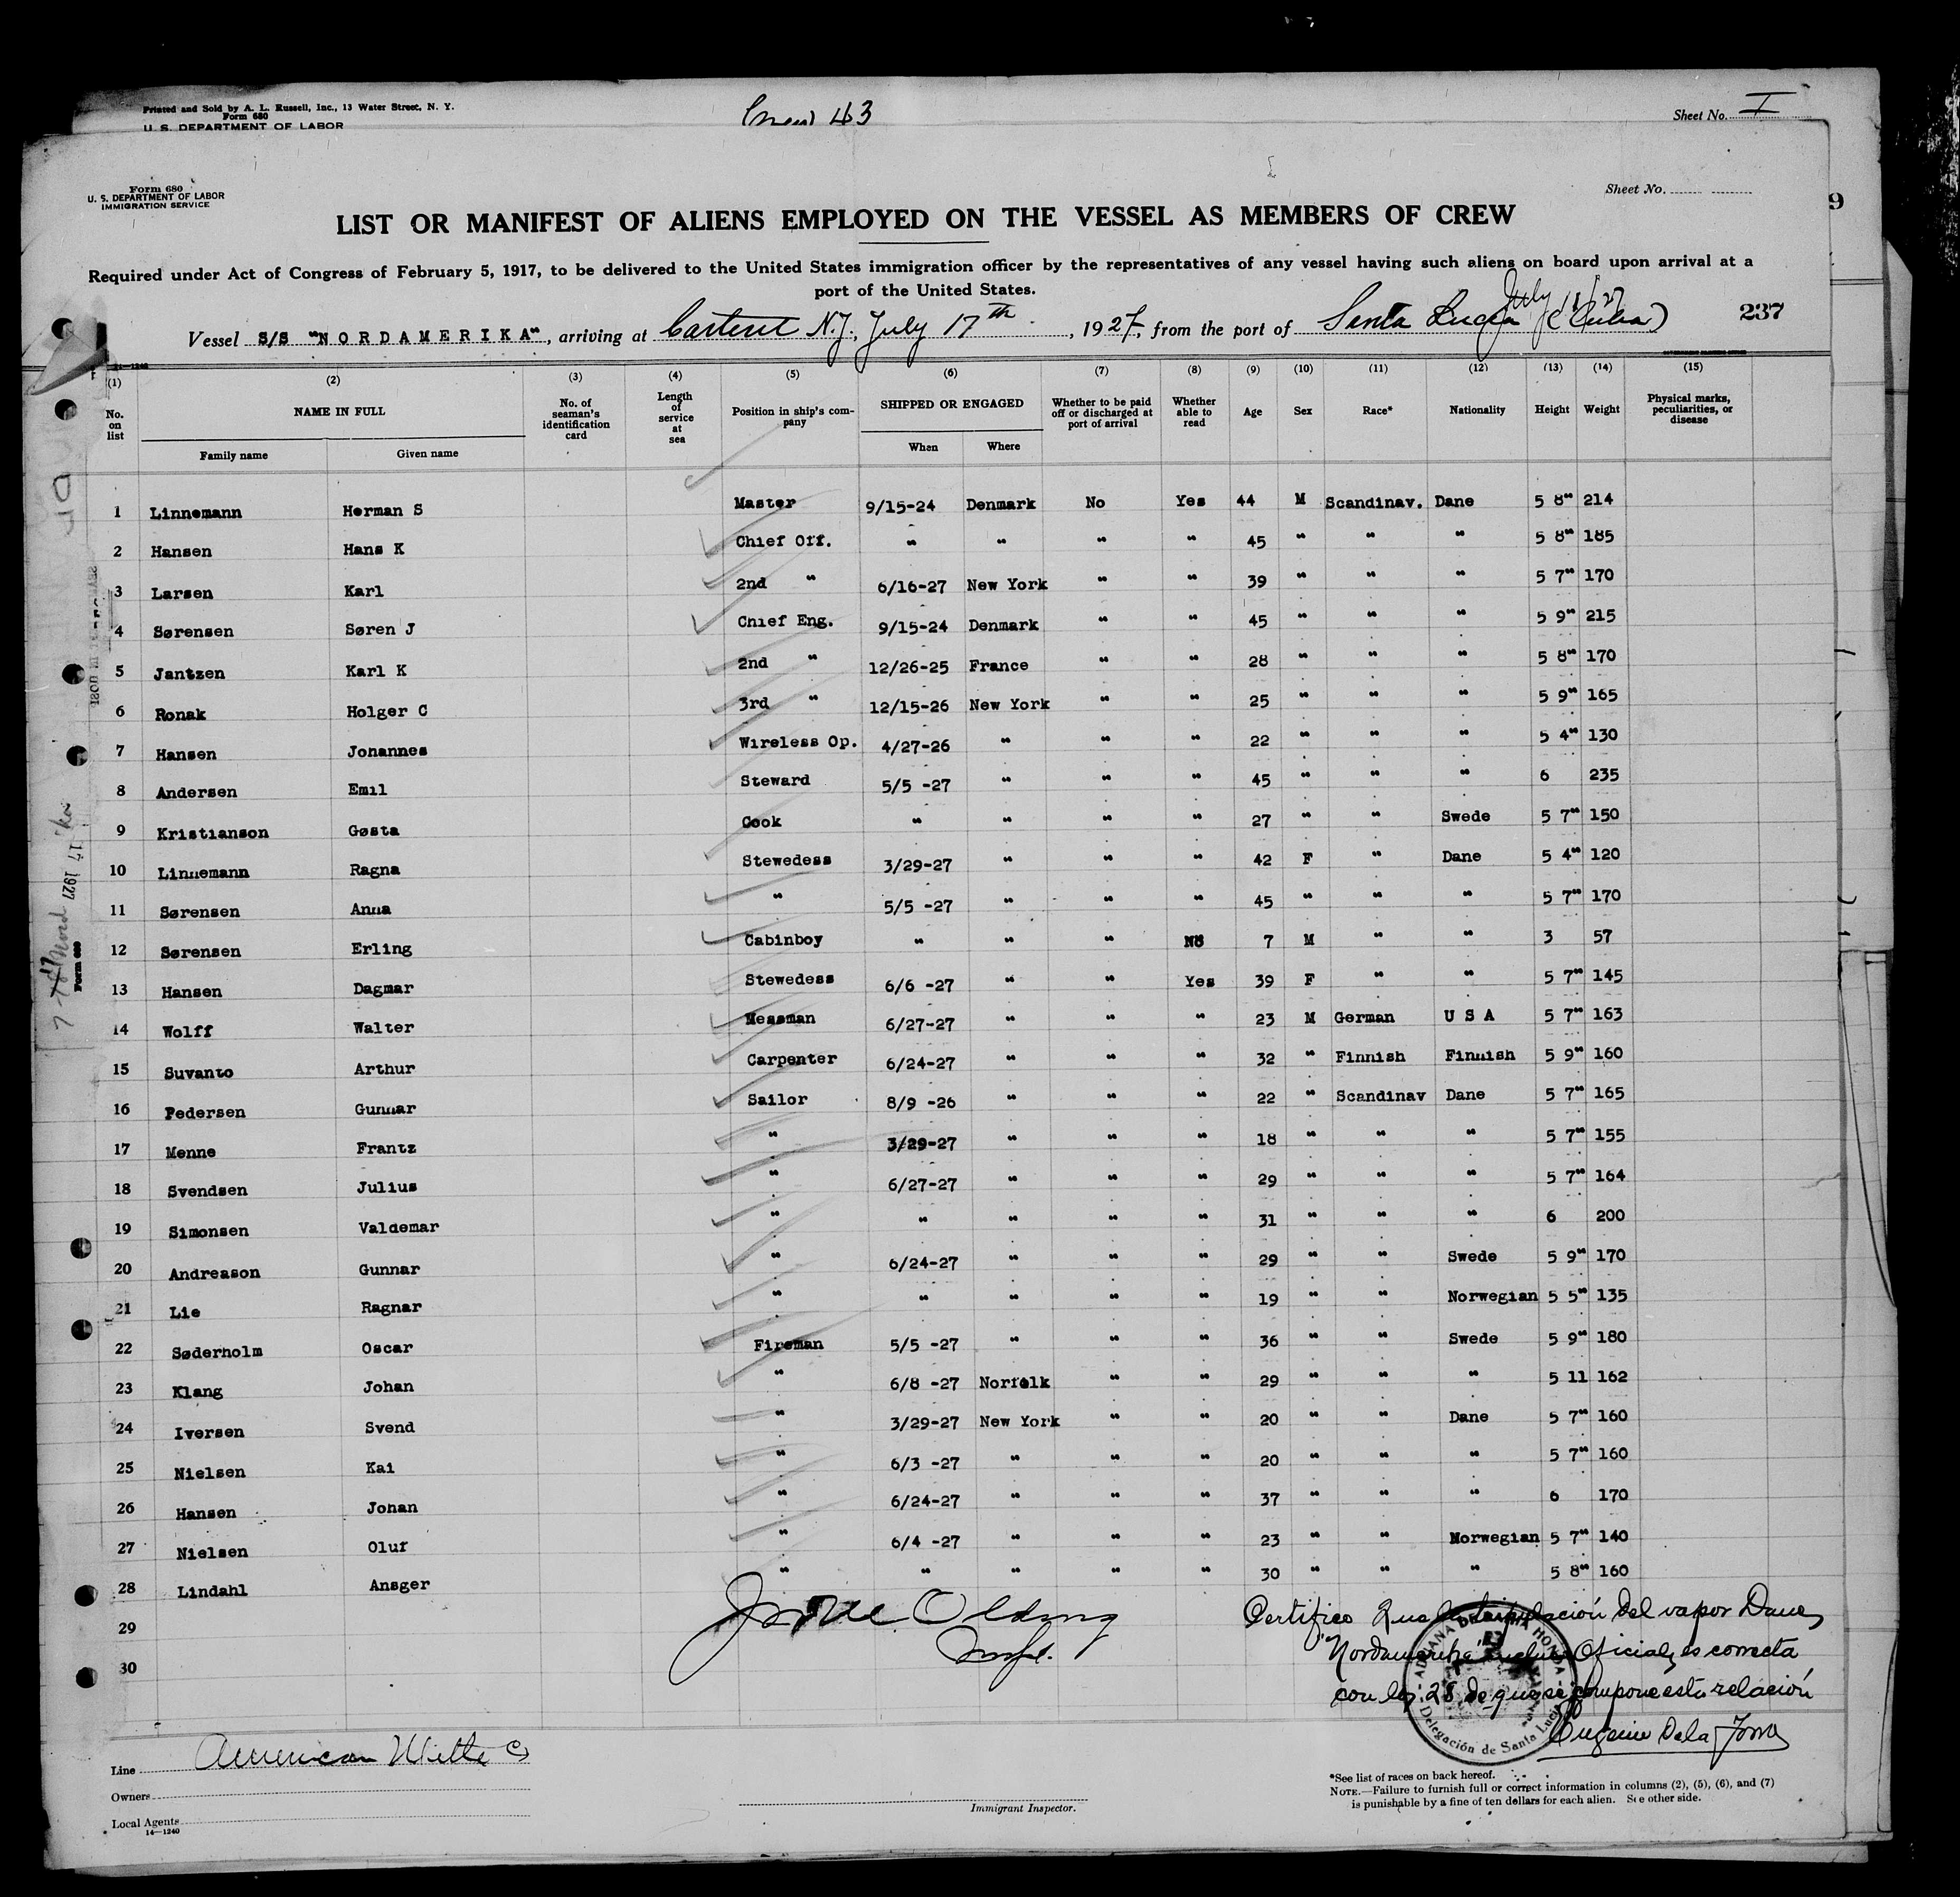 Printed and Sold by A. L. Russell, Inc., 13 Water Street, N. Y.
Form 680
U. S. DEPARTMENT OF LABOR
43
Sheet No. I
Form 680
U. S. DEPARTMENT OF LABOR
IMMIGRATION SERVICE
Sheet No.
LIST OR MANIFEST OF ALIENS EMPLOYED ON THE VESSEL AS MEMBERS OF CREW
Required under Act of Congress of February 5, 1917, to be delivered to the United States immigration officer by the representatives of any vessel having such aliens on board upon arrival at a
port of the United States.
Vessel S/S "NORDAMERIKA", arriving at Carteret N.J., July 17th, 1927, from the port of Santa Lucia (Cuba)
237
(1) (2) (3) (4) (5) (6) (7) (8) (9) (10) (11) (12) (13) (14) (15)
No. on list NAME IN FULL Family name Given name No. of seaman's identification card Length of service at sea Position in ship's company SHIPPED OR ENGAGED When Where Whether to be paid off or discharged at port of arrival Whether able to read Age Sex Race* Nationality Height Weight Physical marks, peculiarities, or disease
1 Linnemann Herman S Master 9/15-24 Denmark No Yes 44 M Scandinav. Dane 5 8" 214
2 Hansen Hans K Chief Off. " " " " 45 " " " 5 8" 185
3 Larsen Karl 2nd " 6/16-27 New York " " 39 " " " 5 7" 170
4 Sørensen Søren J Chief Eng. 9/15-24 Denmark " " 45 " " " 5 9" 215
5 Jantzen Karl K 2nd " 12/26-25 France " " 28 " " " 5 8" 170
6 Ronak Holger C 3rd " 12/15-26 New York " " 25 " " " 5 9" 165
7 Hansen Johannes Wireless Op. 4/27-26 " " " 22 " " " 5 4" 130
8 Andersen Emil Steward 5/5 -27 " " " 45 " " " 6 235
9 Kristianson Gøsta Cook " " " " 27 " " Swede 5 7" 150
10 Linnemann Ragna Stewedess 3/29-27 " " " 42 F " Dane 5 4" 120
11 Sørensen Anna " 5/5 -27 " " " 45 " " " 5 7" 170
12 Sørensen Erling Cabinboy " " " No 7 M " " 3 57
13 Hansen Dagmar Stewedess 6/6 -27 " " Yes 39 F " " 5 7" 145
14 Wolff Walter Messman 6/27-27 " " " 23 M German U S A 5 7" 163
15 Suvanto Arthur Carpenter 6/24-27 " " " 32 " Finnish Finnish 5 9" 160
16 Pedersen Gunnar Sailor 8/9 -26 " " " 22 " Scandinav Dane 5 7" 165
17 Menne Frantz " 3/29-27 " " " 18 " " " 5 7" 155
18 Svendsen Julius " 6/27-27 " " " 29 " " " 5 7" 164
19 Simonsen Valdemar " " " " " 31 " " " 6 200
20 Andreason Gunnar " 6/24-27 " " " 29 " " Swede 5 9" 170
21 Lie Ragnar " " " " " 19 " " Norwegian 5 5" 135
22 Søderholm Oscar Fireman 5/5 -27 " " " 36 " " Swede 5 9" 180
23 Klang Johan " 6/8 -27 Norfolk " " 29 " " " 5 11 162
24 Iversen Svend " 3/29-27 New York " " 20 " " Dane 5 7" 160
25 Nielsen Kai " 6/3 -27 " " " 20 " " " 5 7" 160
26 Hansen Johan " 6/24-27 " " " 37 " " " 6 170
27 Nielsen Oluf " 6/4 -27 " " " 23 " " Norwegian 5 7" 140
28 Lindahl Ansger " " " " " 30 " " " 5 8" 160
29
30
Certifico Que la tripulación del vapor Danes
"Nordamerika" Oficiales es correcta
con los 28 de que se compone esta relación
Delegación de Santa Lucia
Line American
Owners
Local Agents
14—1240
Immigrant Inspector.
*See list of races on back hereof.
NOTE.—Failure to furnish full or correct information in columns (2), (5), (6), and (7)
is punishable by a fine of ten dollars for each alien. See other side.